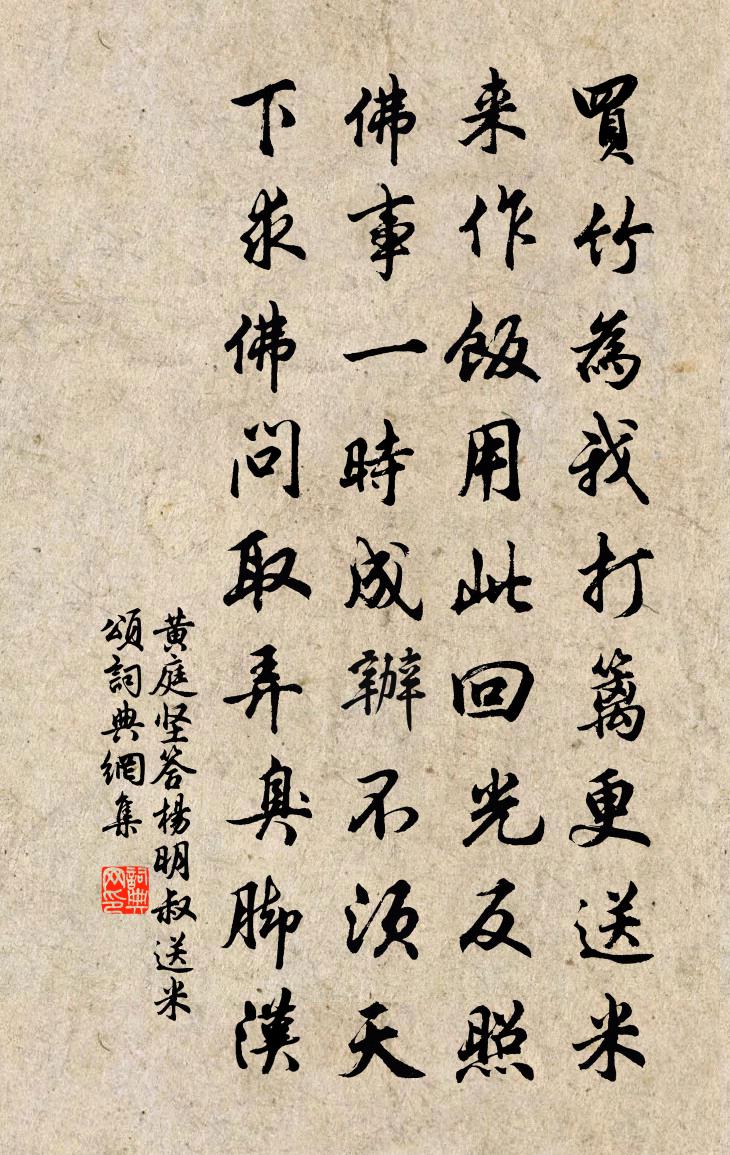 買竹為我打篱更送米
来作飯用此回光反照
佛事一時成辦不須天
下求佛問取弄臭脚漢
黄庭坚答楊明叔送米
頌詞典網集
詞典網印